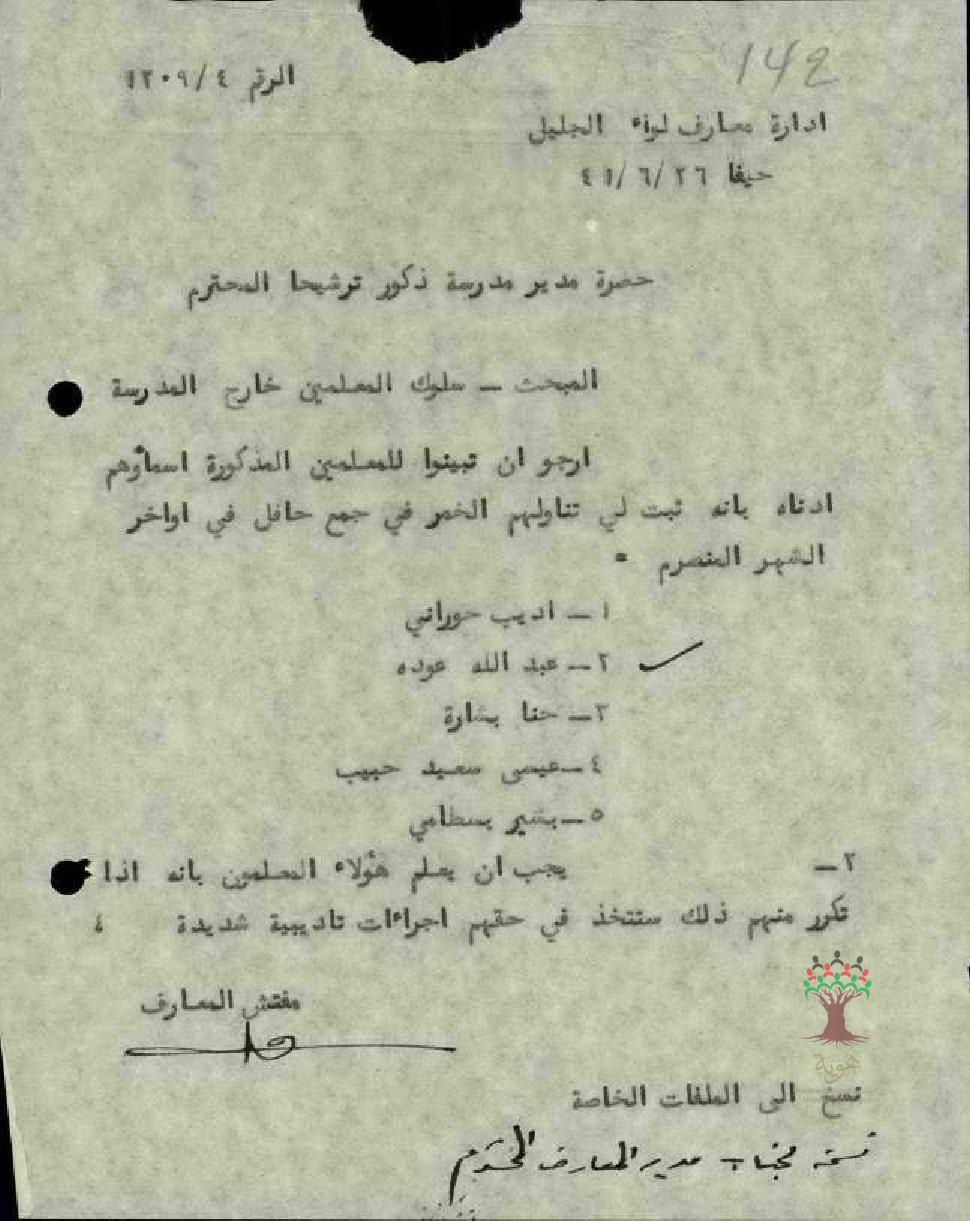 142
الرقم ١٢٠٩/٤
ادارة معارف لواء الجليل
حيفا ٤١/٦/٢٦
حضرة مدير مدرسة ذكور ترشيحا المحترم
المبحث — سلوك المعلمين خارج المدرسة
ارجو ان تبينوا للمعلمين المذكورة اسماؤهم
ادناه بانه ثبت لي تناولهم الخمر في جمع حافل في اواخر
الشهر المنصرم ٠
١ — اديب حوراني
٢ — عبد الله عوده
٣ — حنا بشارة
٤ — عيسى سعيد حبيب
٥ — بشير بسطامي
٢ — يجب ان يعلم هؤلاء المعلمون بانه اذا
تكرر منهم ذلك ستتخذ في حقهم اجراءات تاديبية شديدة ٤
مفتش المعارف
هوية
نسخ الى الملفات الخاصة
نسخة لجناب مدير المعارف المحترم